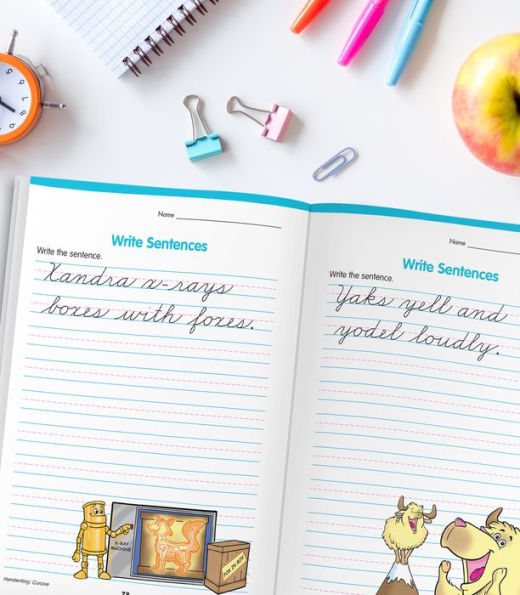 Name
Write Sentences
Write the sentence.
Xandra x-rays
boxes with foxes.
X-RAY
MACHINE
FOX IN BOX
Handwriting: Cursive
78
Name
Write Sentences
Write the sentence.
Yaks yell and
yodel loudly.